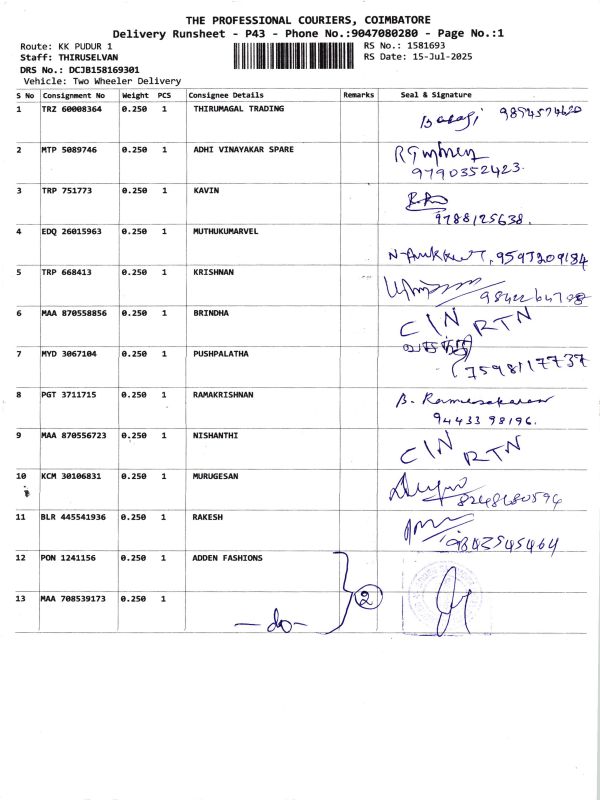 THE PROFESSIONAL COURIERS, COIMBATORE
Delivery Runsheet - P43 - Phone No.:9047080280 - Page No.:1
Route: KK PUDUR 1 RS No.: 1581693
Staff: THIRUSELVAN RS Date: 15-Jul-2025
DRS No.: DCJB158169301
Vehicle: Two Wheeler Delivery
S No Consignment No Weight PCS Consignee Details Remarks Seal & Signature
1 TRZ 60008364 0.250 1 THIRUMAGAL TRADING
Balaji 9894574620
2 MTP 5089746 0.250 1 ADHI VINAYAKAR SPARE
9790352423.
3 TRP 751773 0.250 1 KAVIN
9788125638.
4 EDQ 26015963 0.250 1 MUTHUKUMARVEL
9597209184
5 TRP 668413 0.250 1 KRISHNAN
6 MAA 870558856 0.250 1 BRINDHA
C/N RTN
7 MYD 3067104 0.250 1 PUSHPALATHA
7598117737
8 PGT 3711715 0.250 1 RAMAKRISHNAN
94433 98196.
9 MAA 870556723 0.250 1 NISHANTHI
C/N RTN
10 KCM 30106831 0.250 1 MURUGESAN
8248680594
11 BLR 445541936 0.250 1 RAKESH
9843545464
12 PON 1241156 0.250 1 ADDEN FASHIONS
2
13 MAA 708539173 0.250 1
-do-